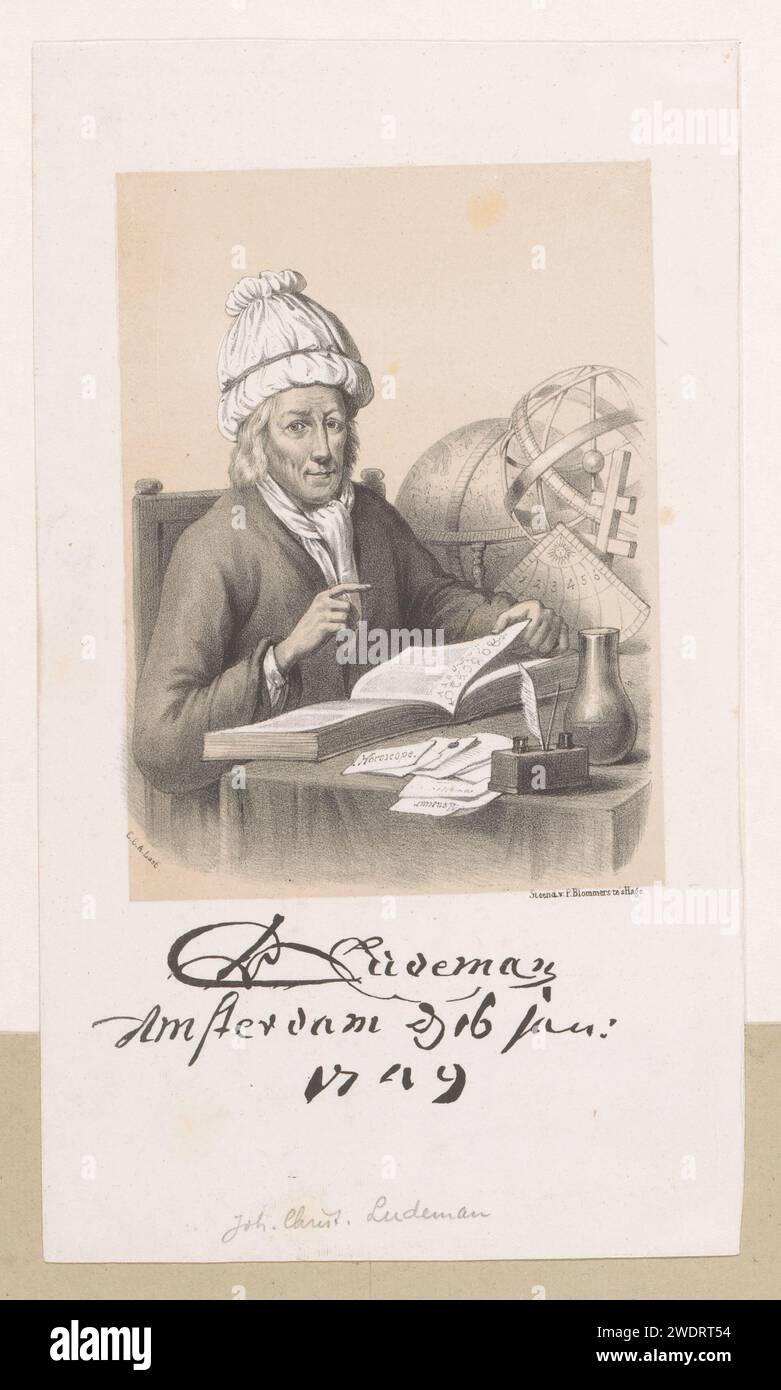 1 2 3 4 5 6
Horoscope.
C.C.A. Last
Steend. v. P. Blommers te sHage
D Ludeman
Amsterdam d 16 jan:
1749
Joh. Christ. Ludeman
alamy
Image ID: 2WDRT54
www.alamy.com